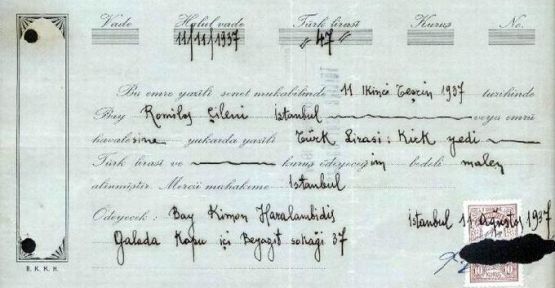 Vade Halul vade Türk lirası Kuruş No.
11/11/1937 47
Bu emre yazılı senet mukabilinde 11 Ikinci Teşrin 1937 tarihinde
Bay Romilos Çileni Istanbul veya emrü
havalesina yukarda yazılı Türk Lirasi : Kirk yedi
Türk lirası ve kuruş ödeyeceğim bedeli malen
alınmıştır. Mercii muhakeme Istanbul
Ödeyecek : Bay Kimon Haralambidis Istanbul 11 Ağustos 1937
Galada Kapu içi Beyazit sokaği 37
B. K. K. H.
10 10